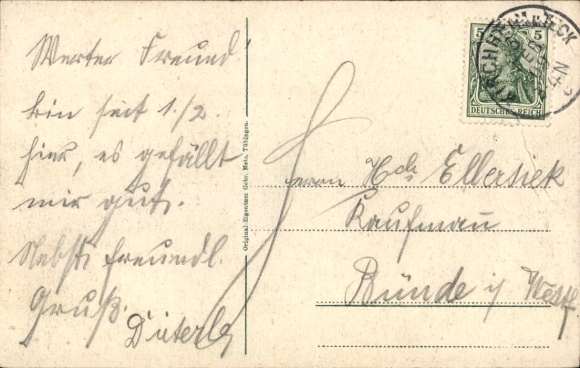 Werter Freund!
bin seit 1./2.
hier, es gefällt
mir gut.
Nebst freundl.
Gruß.
Dieterle
Original-Eigentum Gebr. Metz, Tübingen
KIRCHHEIM u. TECK
5
DEUTSCHES REICH
Herrn Hch Ellersiek
Kaufmann
Bünde i/ Westf.